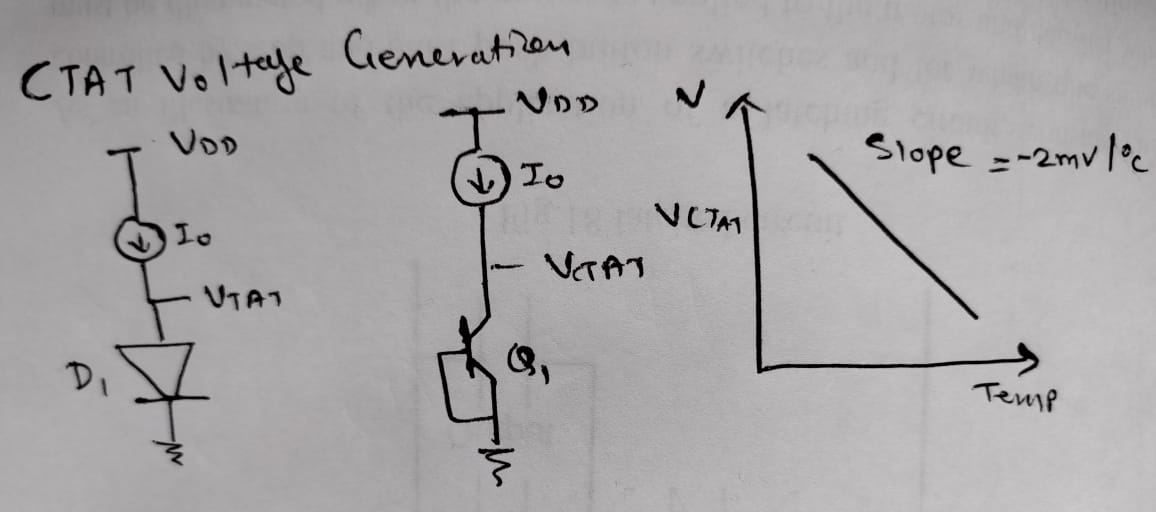 CTAT Voltage Generation
VDD
I0
VTAT
D1
VDD
I0
VCTAT
Q1
V
VCTAT
Slope = -2mV/°C
Temp